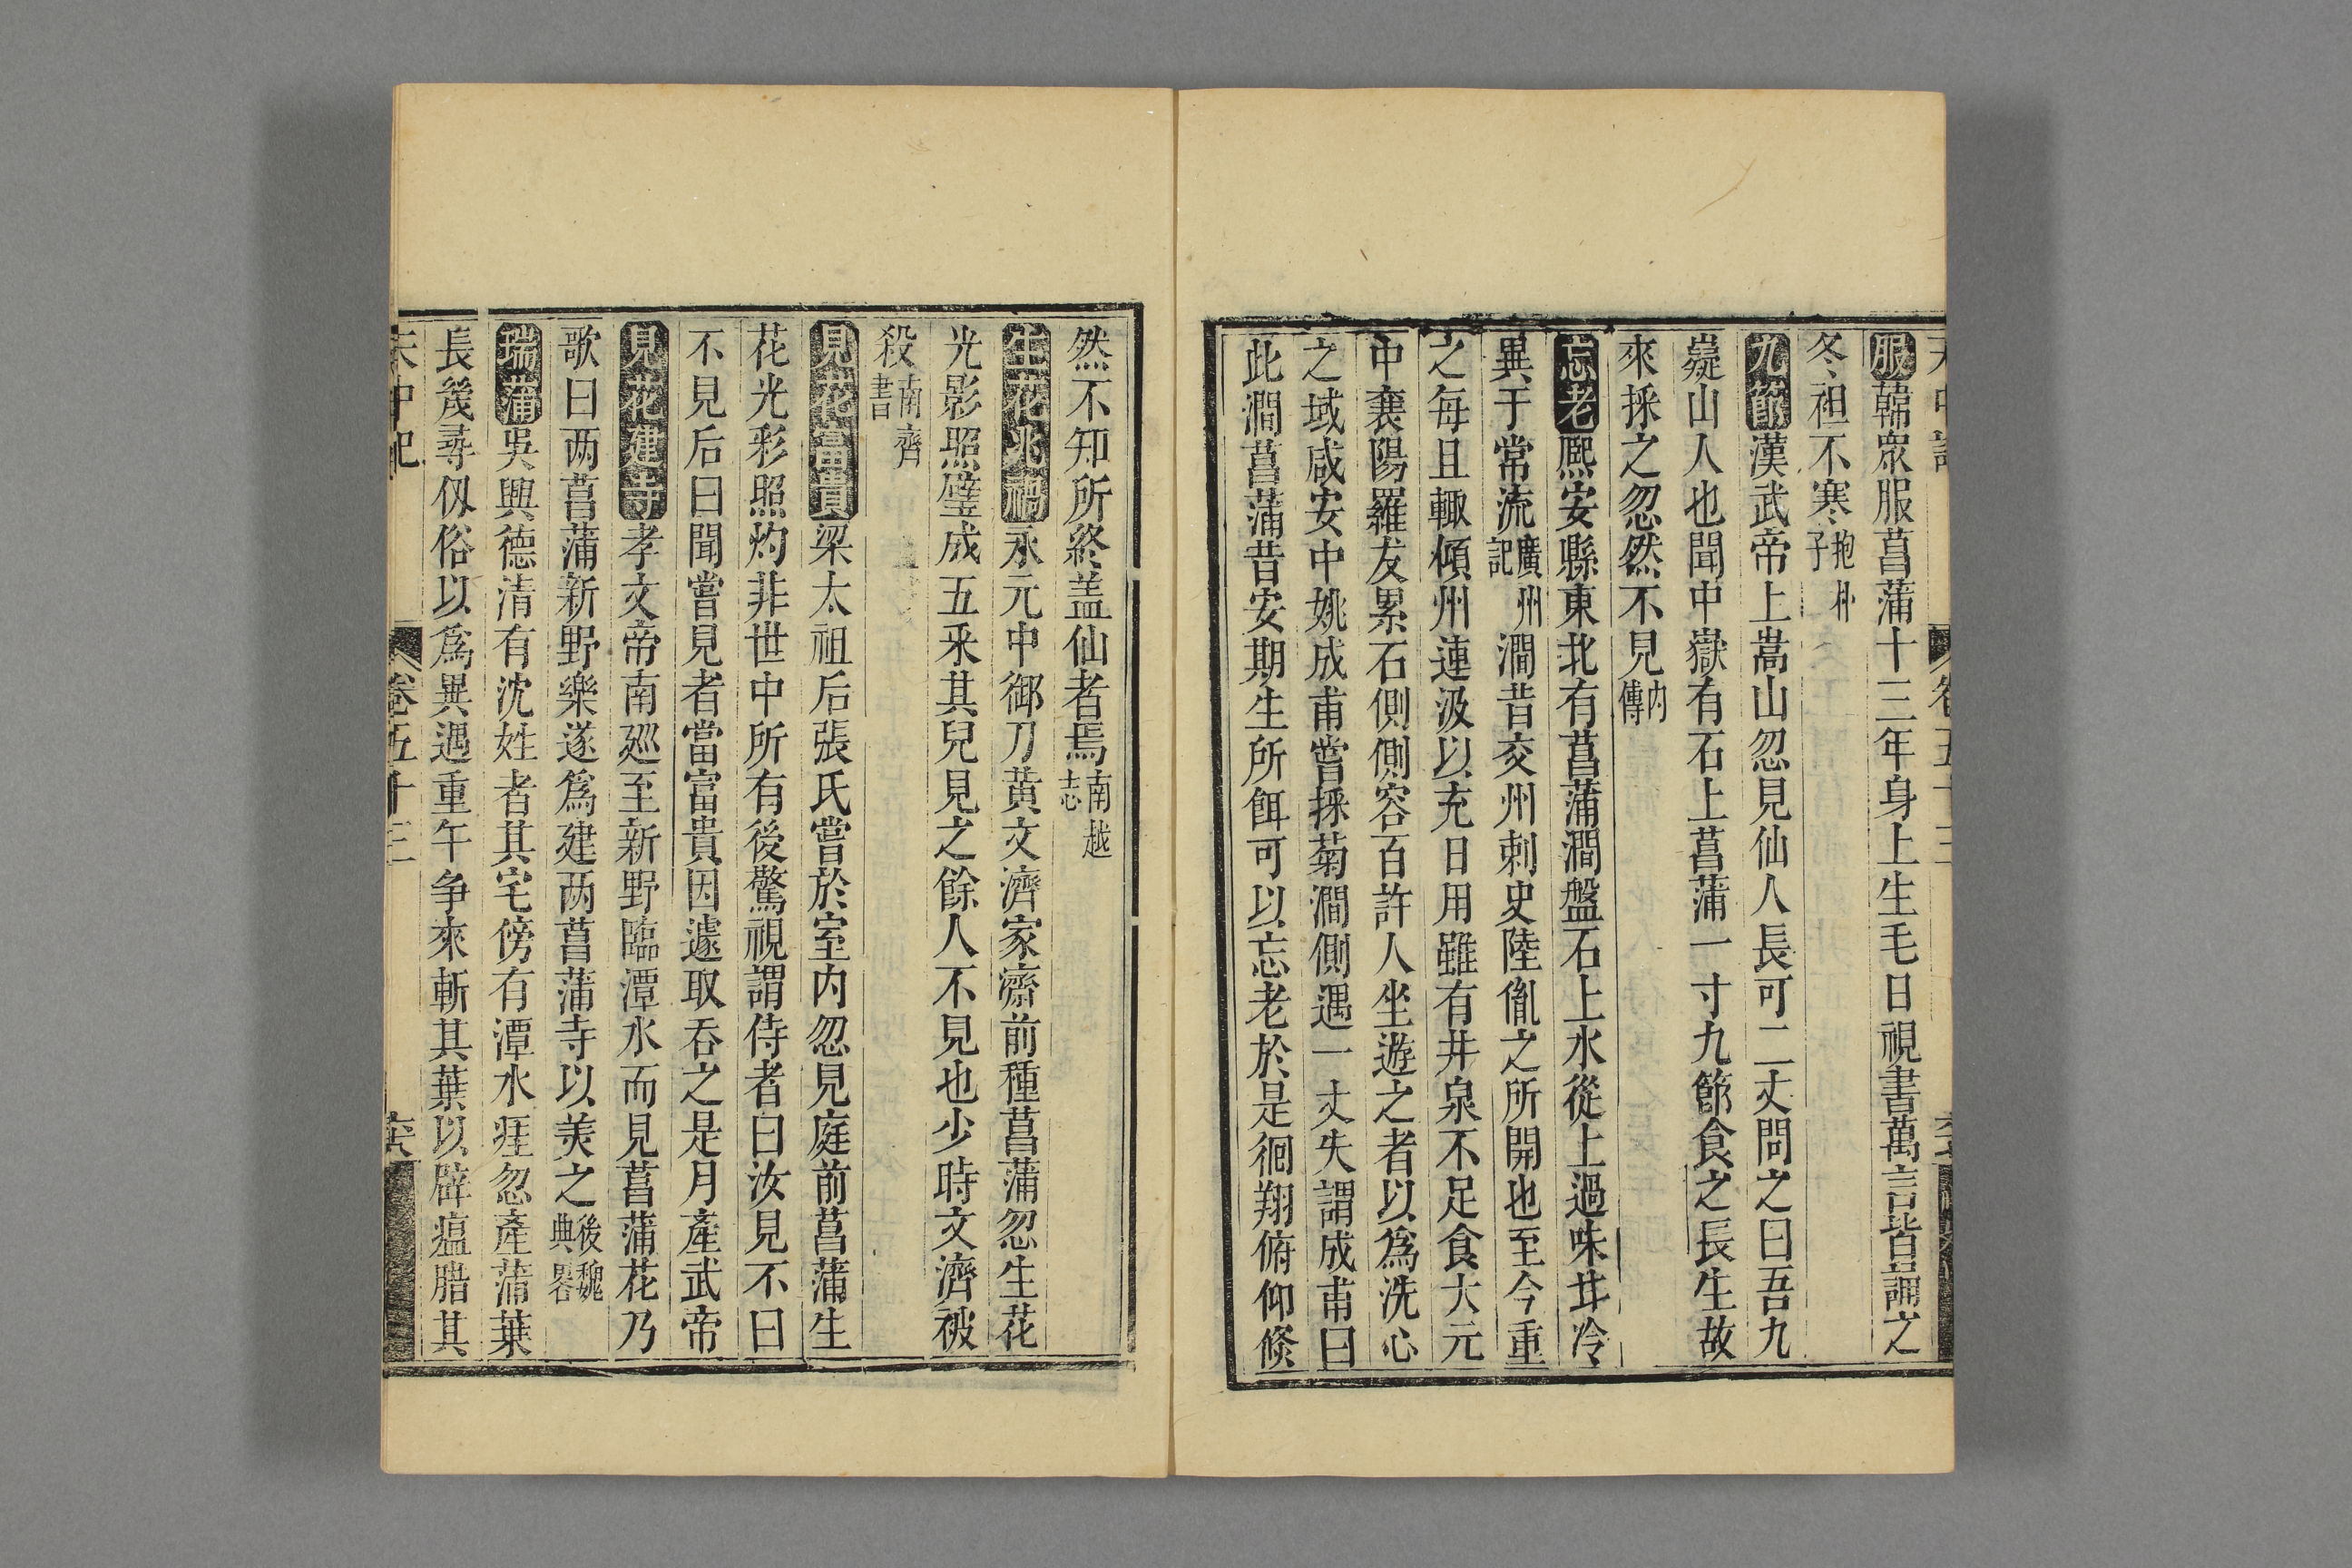 服韓衆服菖蒲十三年身上生毛日視書萬言皆誦之
冬袒不寒抱朴子
九節漢武帝上嵩山忽見仙人長可二丈問之曰吾九
嶷山人也聞中嶽有石上菖蒲一寸九節食之長生故
來採之忽然不見内傳
忘老熈安縣東北有菖蒲澗盤石上水從上過味甘冷
異于常流廣州記澗昔交州刺史陸㣧之所開也至今重
之每旦輙傾州連汲以充日用雖有井泉不足食大元
中襄陽羅友累石側側容百許人坐遊之者以爲洗心
之域咸安中姚成甫嘗採菊澗側遇一丈夫謂成甫曰
此澗菖蒲昔安期生所餌可以忘老於是徊翔俯仰倏
然不知所終盖仙者焉南越志
生花兆禍永元中御刀黄文濟家齋前種菖蒲忽生花
光影照壁成五采其兒見之餘人不見也少時文濟被
殺南齊書
見花富貴梁太祖后張氏嘗於室内忽見庭前菖蒲生
花光彩照灼非世中所有後驚視謂侍者曰汝見不曰
不見后曰聞嘗見者當富貴因遽取吞之是月產武帝
見花建寺孝文帝南廵至新野臨潭水而見菖蒲花乃
歌曰两菖蒲新野樂遂爲建两菖蒲寺以美之後魏典畧
瑞蒲吳興德清有沈姓者其宅傍有潭水涯忽產蒲葉
長幾尋仭俗以爲異遇重午争來斬其葉以辟瘟腊其
天中記
卷五十三